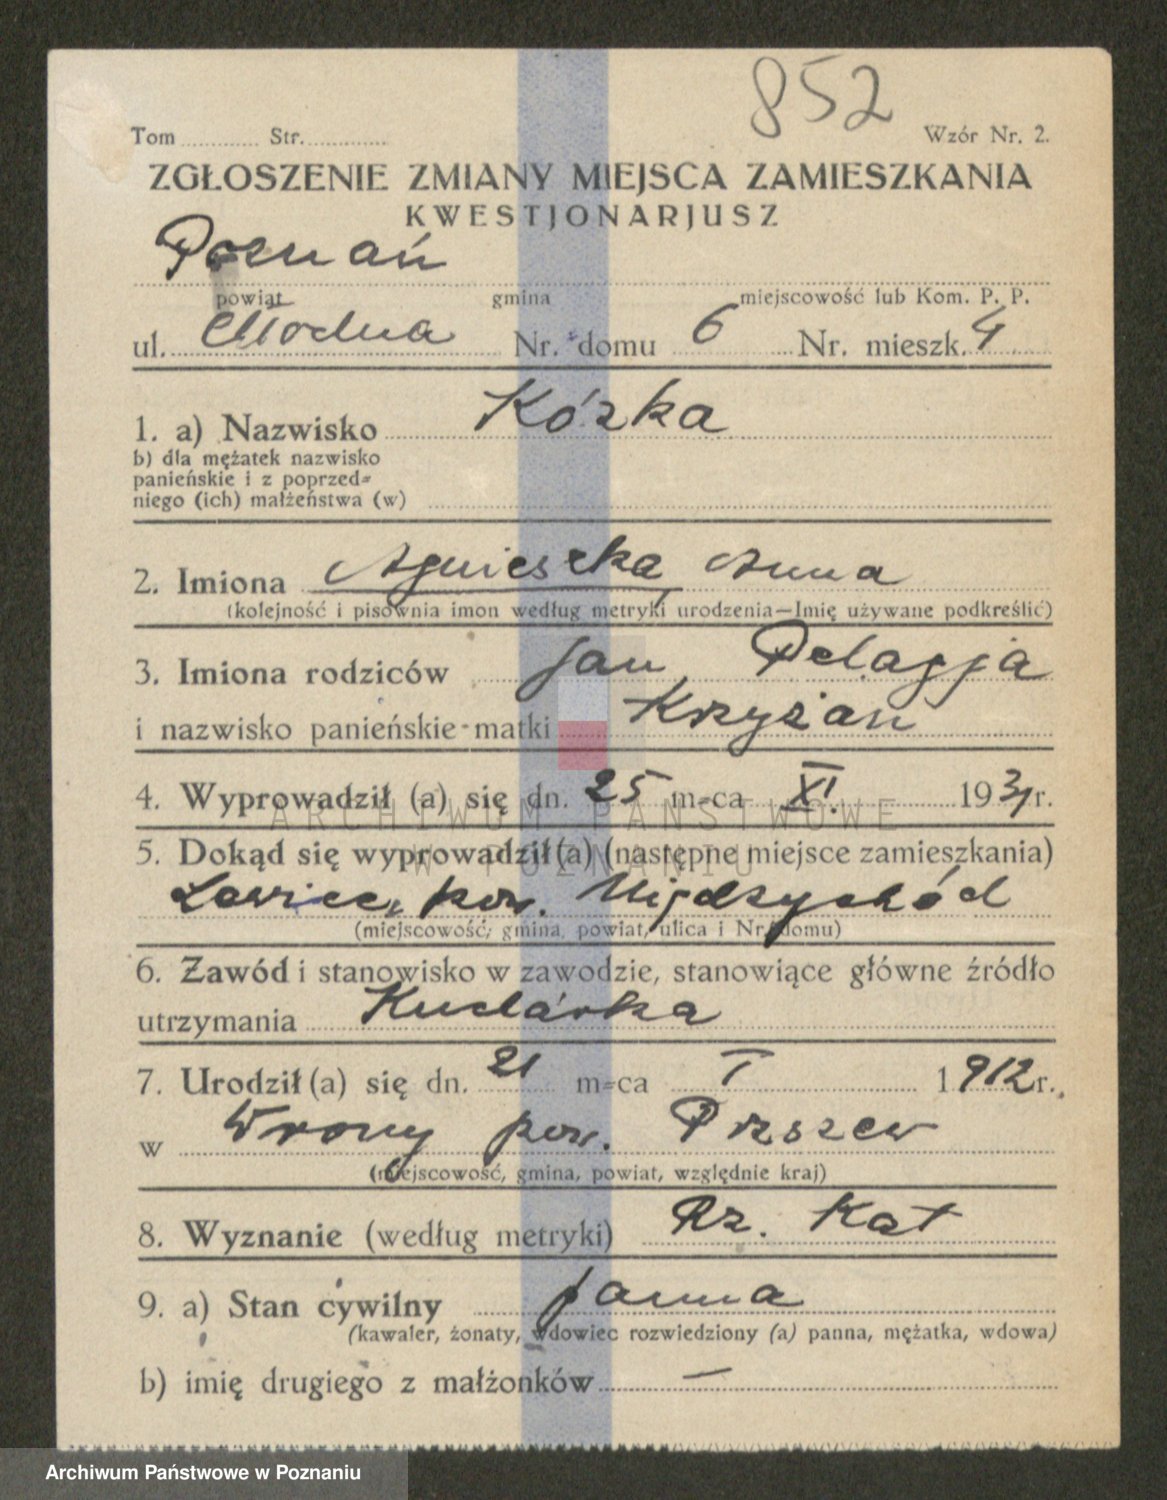 852
Tom ............ Str. ............ Wzór Nr. 2.
ZGŁOSZENIE ZMIANY MIEJSCA ZAMIESZKANIA
KWESTJONARJUSZ
Poznań
powiat gmina miejscowość lub Kom. P. P.
ul. Nr. domu 6 Nr. mieszk. 4
1. a) Nazwisko Kózka
b) dla mężatek nazwisko
panieńskie i z poprzed-
niego (ich) małżeństwa (w)
2. Imiona Agnieszka Anna
(kolejność i pisownia imon według metryki urodzenia—Imię używane podkreślić)
3. Imiona rodziców Jan Pelagja
i nazwisko panieńskie matki Krzyżan
4. Wyprowadził (a) się dn. 25 m-ca XI. 1931 r.
ARCHIWUM PAŃSTWOWE
W POZNANIU
5. Dokąd się wyprowadził (a) (następne miejsce zamieszkania)
pow. Międzychód
(miejscowość, gmina, powiat, ulica i Nr. domu)
6. Zawód i stanowisko w zawodzie, stanowiące główne źródło
utrzymania Kucharka
7. Urodził (a) się dn. 21 m-ca I 1912 r.
w Wrony pow.
(miejscowość, gmina, powiat, względnie kraj)
8. Wyznanie (według metryki) Rz. Kat
9. a) Stan cywilny panna
(kawaler, żonaty, wdowiec rozwiedziony (a) panna, mężatka, wdowa)
b) imię drugiego z małżonków —
Archiwum Państwowe w Poznaniu